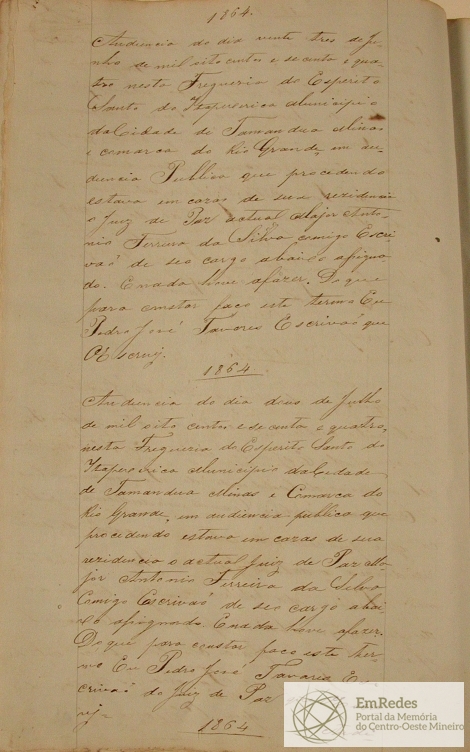 1864.
Audiencia do dia vente tres de Ju-
nho de mil oito centos e secenta e qua-
tro nesta Fregueria do Esperito
Santo da Itapeserica Municipio
da Cidade de Tamandua Minas
e comarca do Rio Grande, em au-
diencia Publica que procedendo
estava em cazas de sua rezidencia
o Juiz de Paz actual Major Anto-
nio Ferreira da Silva comigo Escri-
vaõ de seo cargo abaixo asigna-
do. E nada hove afazer. Do que
para constar faco este termo Eu
Pedro José Tavares Escrivaõ que
O Escrevj.
1864
Audiencia do dia dous de Julho
de mil oito centos e secenta e quatro,
nesta Fregueria do Esperito Santo da
Itapeserica Municipio da Cidade
de Tamandua Minas e Comarca do
Rio Grande, em audiencia publica que
procedendo estava em cazas de sua
rezidencia o actual Juiz de Paz Ma-
jor Antonio Ferreira da Silva
Comigo Escrivaõ de seo cargo abai-
xo asignado. E nada hove afazer.
Do que para constar faco este ter-
mo Eu Pedro José Tavares Es-
crivaõ do Juiz de Paz
1864
EmRedes
Portal da Memória
do Centro-Oeste Mineiro